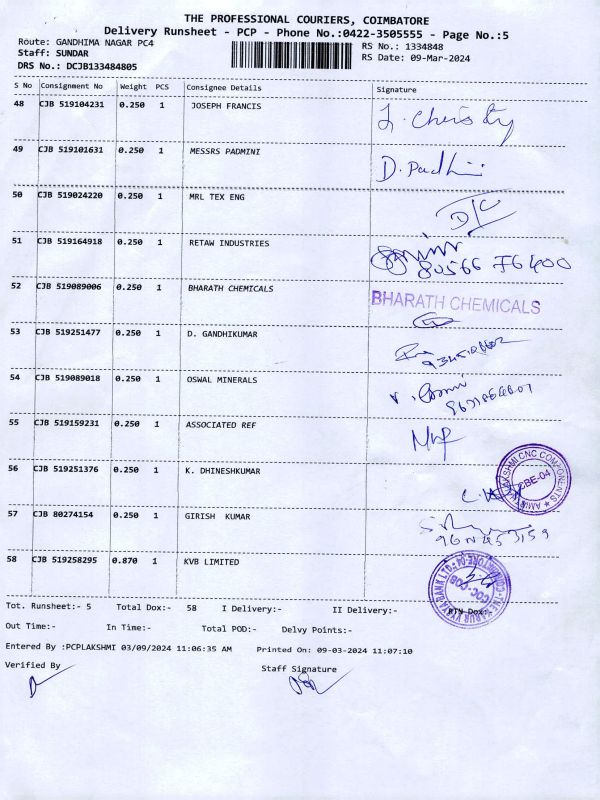 THE PROFESSIONAL COURIERS, COIMBATORE
Delivery Runsheet - PCP - Phone No.:0422-3505555 - Page No.:5
Route: GANDHIMA NAGAR PC4
RS No.: 1334848
Staff: SUNDAR
RS Date: 09-Mar-2024
DRS No.: DCJB133484805
S No Consignment No Weight PCS Consignee Details Signature
48 CJB 519104231 0.250 1 JOSEPH FRANCIS
49 CJB 519101631 0.250 1 MESSRS PADMINI D. Padmini
50 CJB 519024220 0.250 1 MRL TEX ENG
51 CJB 519164918 0.250 1 RETAW INDUSTRIES 80566 76400
52 CJB 519089006 0.250 1 BHARATH CHEMICALS BHARATH CHEMICALS
53 CJB 519251477 0.250 1 D. GANDHIKUMAR
54 CJB 519089018 0.250 1 OSWAL MINERALS
55 CJB 519159231 0.250 1 ASSOCIATED REF
56 CJB 519251376 0.250 1 K. DHINESHKUMAR CBE-04
57 CJB 80274154 0.250 1 GIRISH KUMAR
58 CJB 519258295 0.870 1 KVB LIMITED
Tot. Runsheet:- 5 Total Dox:- 58 I Delivery:- II Delivery:- RTN Dox:-
Out Time:- In Time:- Total POD:- Delvy Points:-
Entered By :PCPLAKSHMI 03/09/2024 11:06:35 AM Printed On: 09-03-2024 11:07:10
Verified By Staff Signature